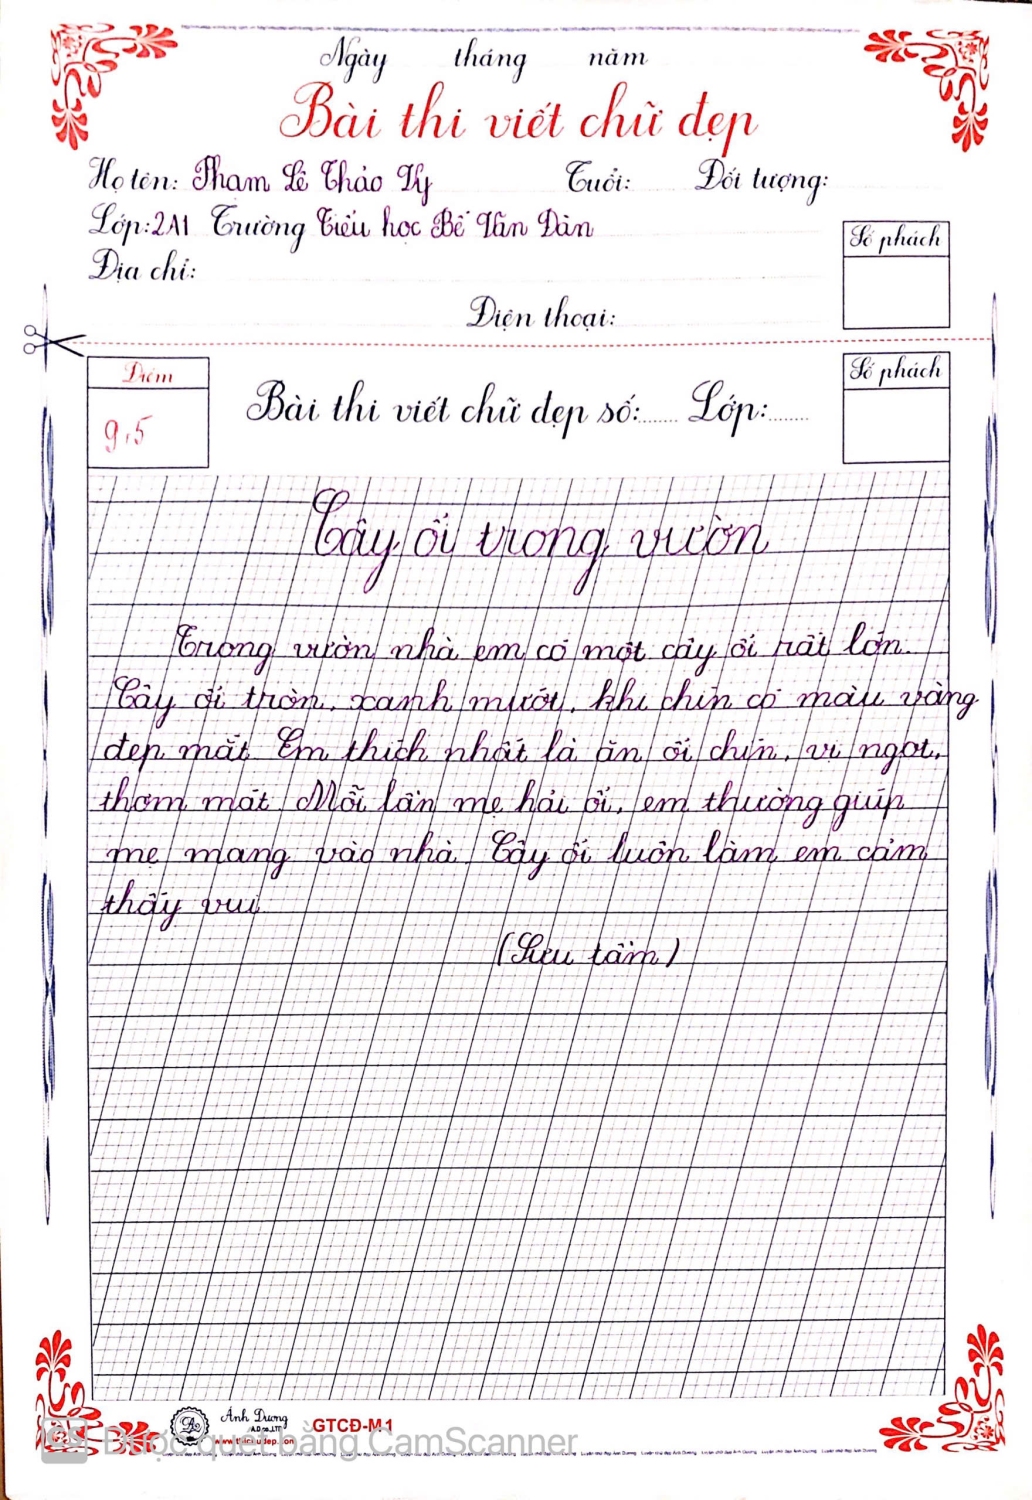 Ngày tháng năm
Bài thi viết chữ đẹp
Họ tên: Phạm Lê Thảo Vy Tuổi: Đối tượng:
Lớp: 2A1 Trường Tiểu học Bế Văn Đàn
Địa chỉ:
Số phách
Điện thoại:
Điểm
9,5
Bài thi viết chữ đẹp số:...... Lớp:.......
Số phách
Cây ổi trong vườn
Trong vườn nhà em có một cây ổi rất lớn.
Cây ổi tròn, xanh mướt, khi chín có màu vàng
đẹp mắt. Em thích nhất là ăn ổi chín, vị ngọt,
thơm mát. Mỗi lần mẹ hái ổi, em thường giúp
mẹ mang vào nhà. Cây ổi luôn làm em cảm
thấy vui.
(Sưu tầm)
Ánh Dương
GTCĐ-M1
Được quét bằng CamScanner